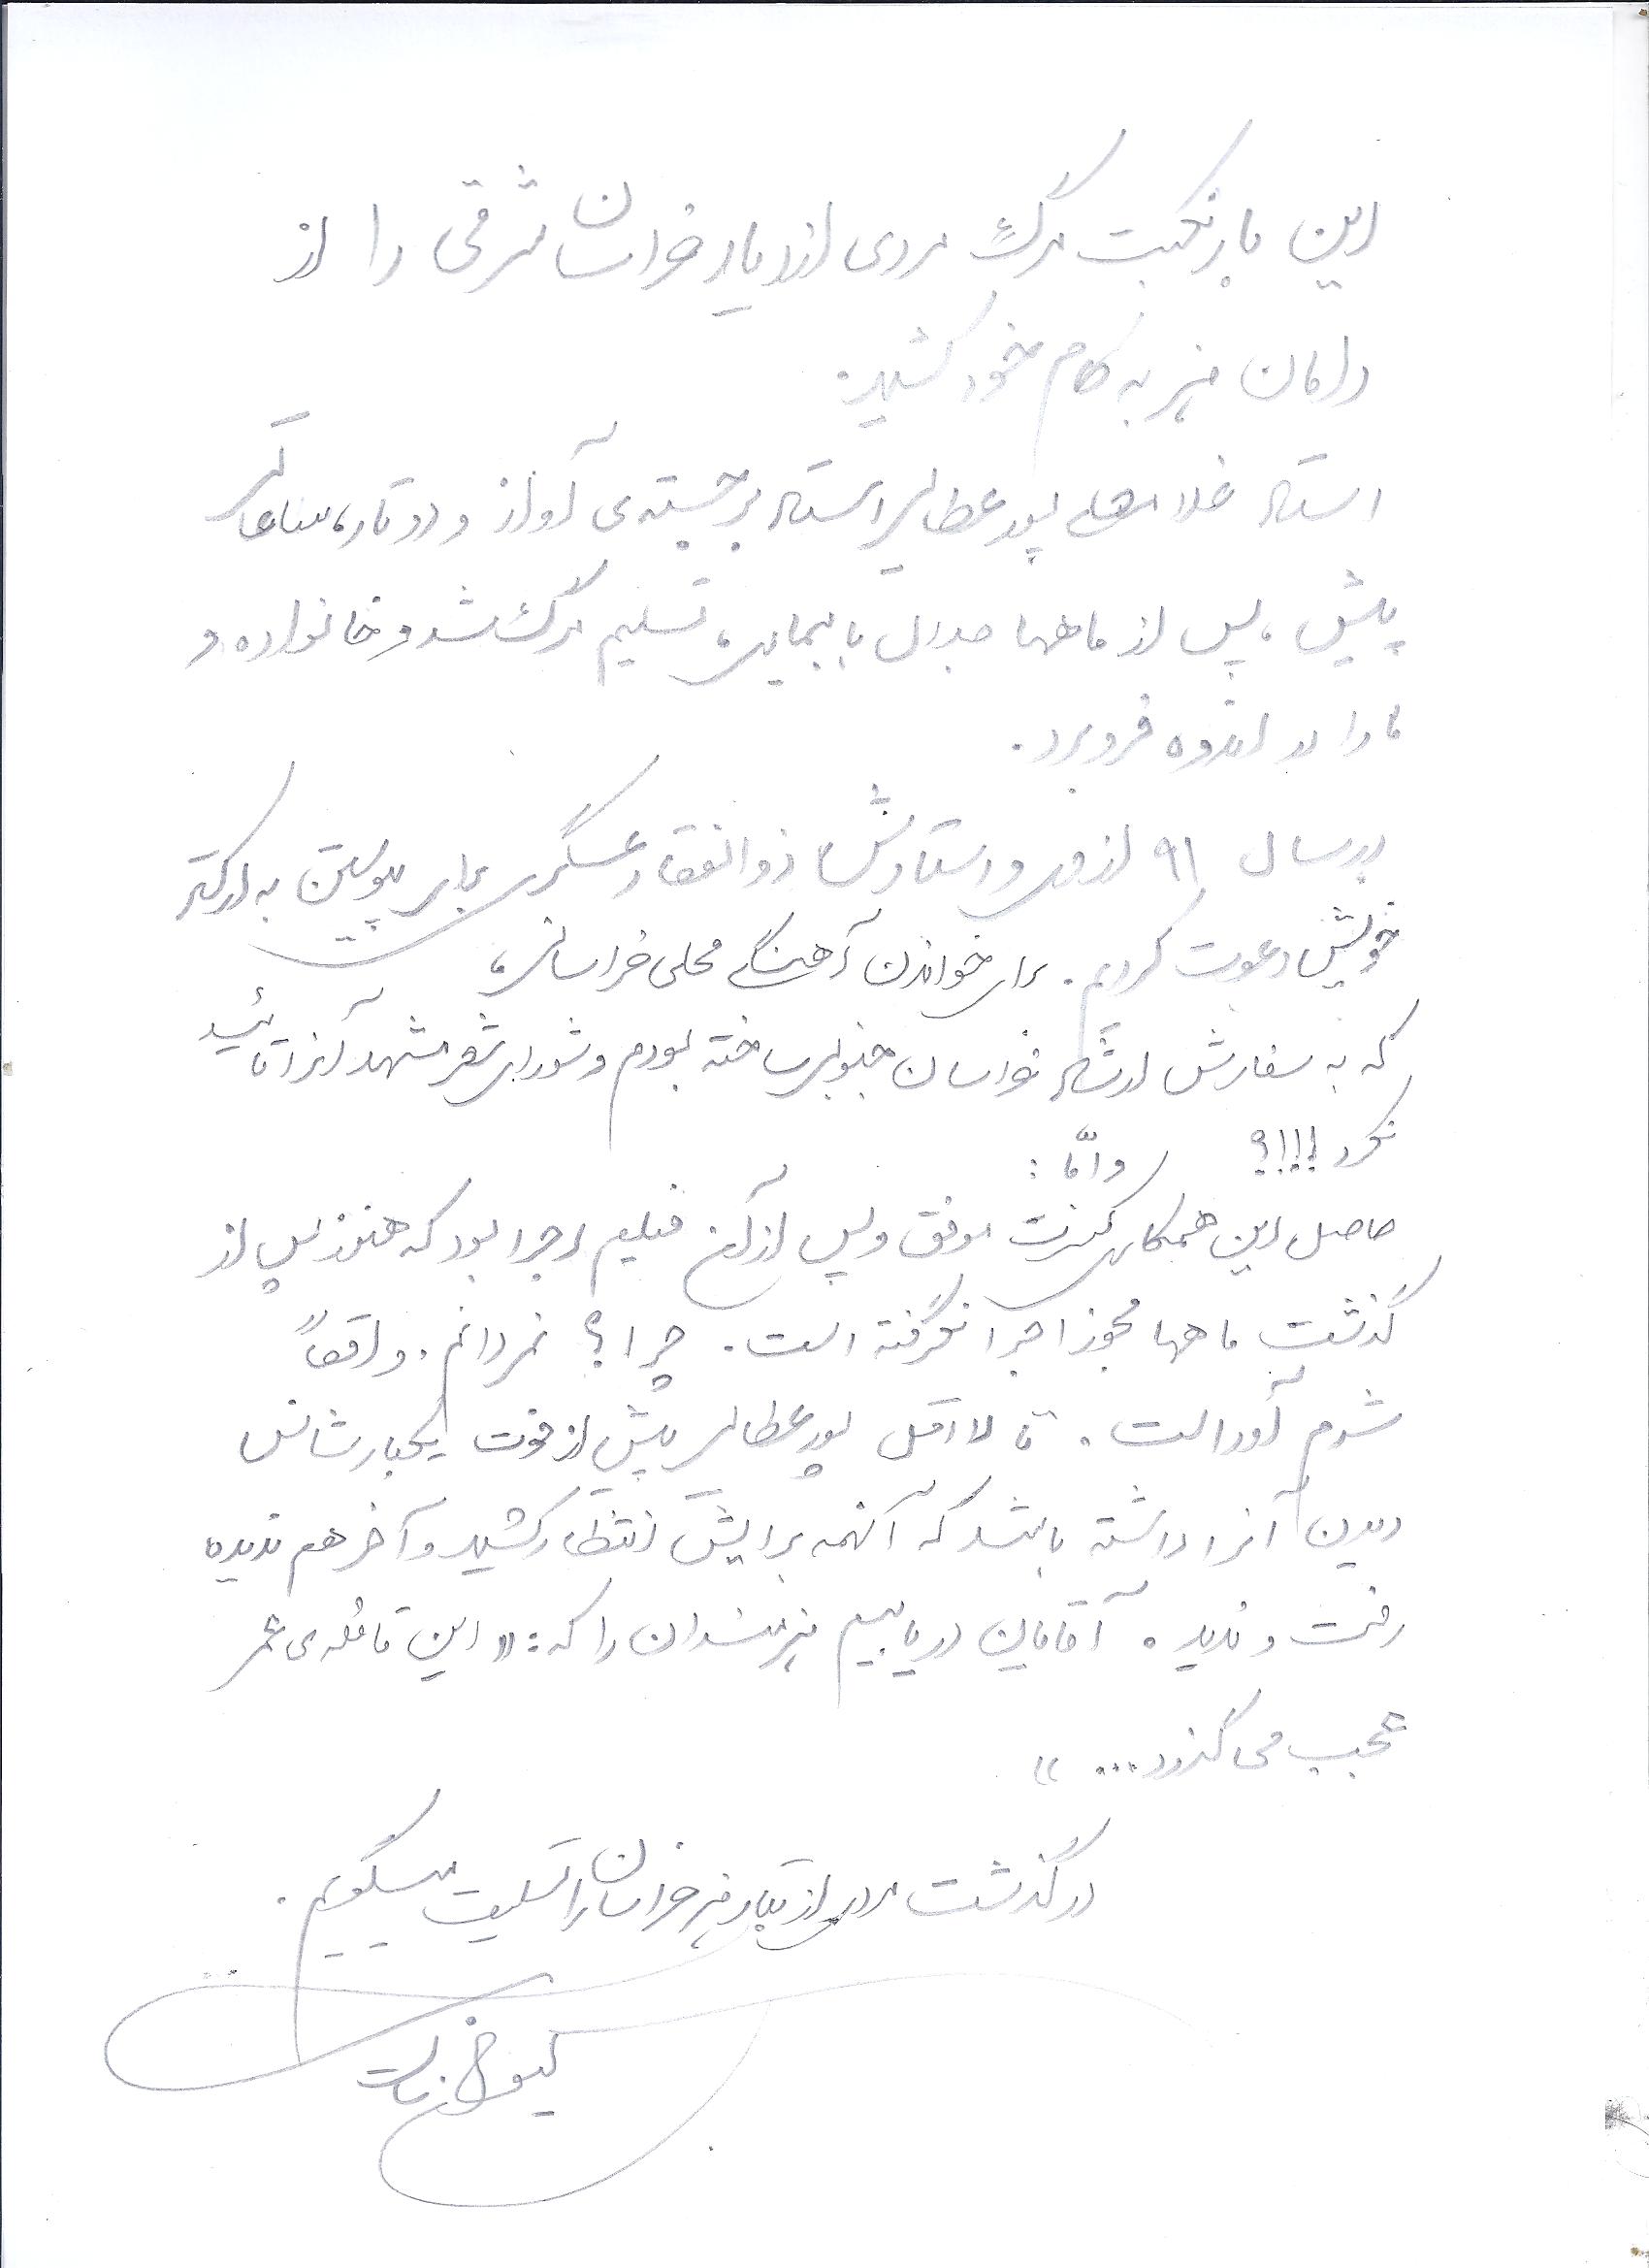 این بار نکبت مرگ مردی از دیار خراسان شرقی را از
دامان هنر به کام خود کشید.
استاد غلامعلی پورعطایی استاد برجسته‌ی آواز و دوتار، ساعاتی
پیش، پس از ماهها جدال با بیماری، تسلیم مرگ شد و خانواده و
ما را در اندوه فرو برد.
در سال ۹۱ از وی و استاد ذوالفقار عسگری برای پیوستن به ارکستر
خویش دعوت کردیم. برای خواندن آهنگی محلی خراسانی،
که به سفارش ارشاد خراسان جنوبی ساخته بودم و شورای شعر مشهد آنرا تائید
نکرد!!!؟ و امّا:
حاصل این همکاری کنسرت موفق و پس از آن فیلم اجرا بود که هنوز پس از
گذشت ماهها مجوز اجرا نگرفته است. چرا؟ نمی‌دانم. واقعاً
شرم آور است. تا لااقل پورعطایی پیش از فوت یکبار شانس
دیدن آنرا داشته باشد که آنهمه برایش انتظار کشید و آخر هم ندیده
رفت و ندید. آقایان دریابیم هنرمندان را که: «این قافله‌ی عمر
عجب می گذرد...»
درگذشت مردی از تبار هنر خراسان را تسلیت میگویم.
کیوان ساکت